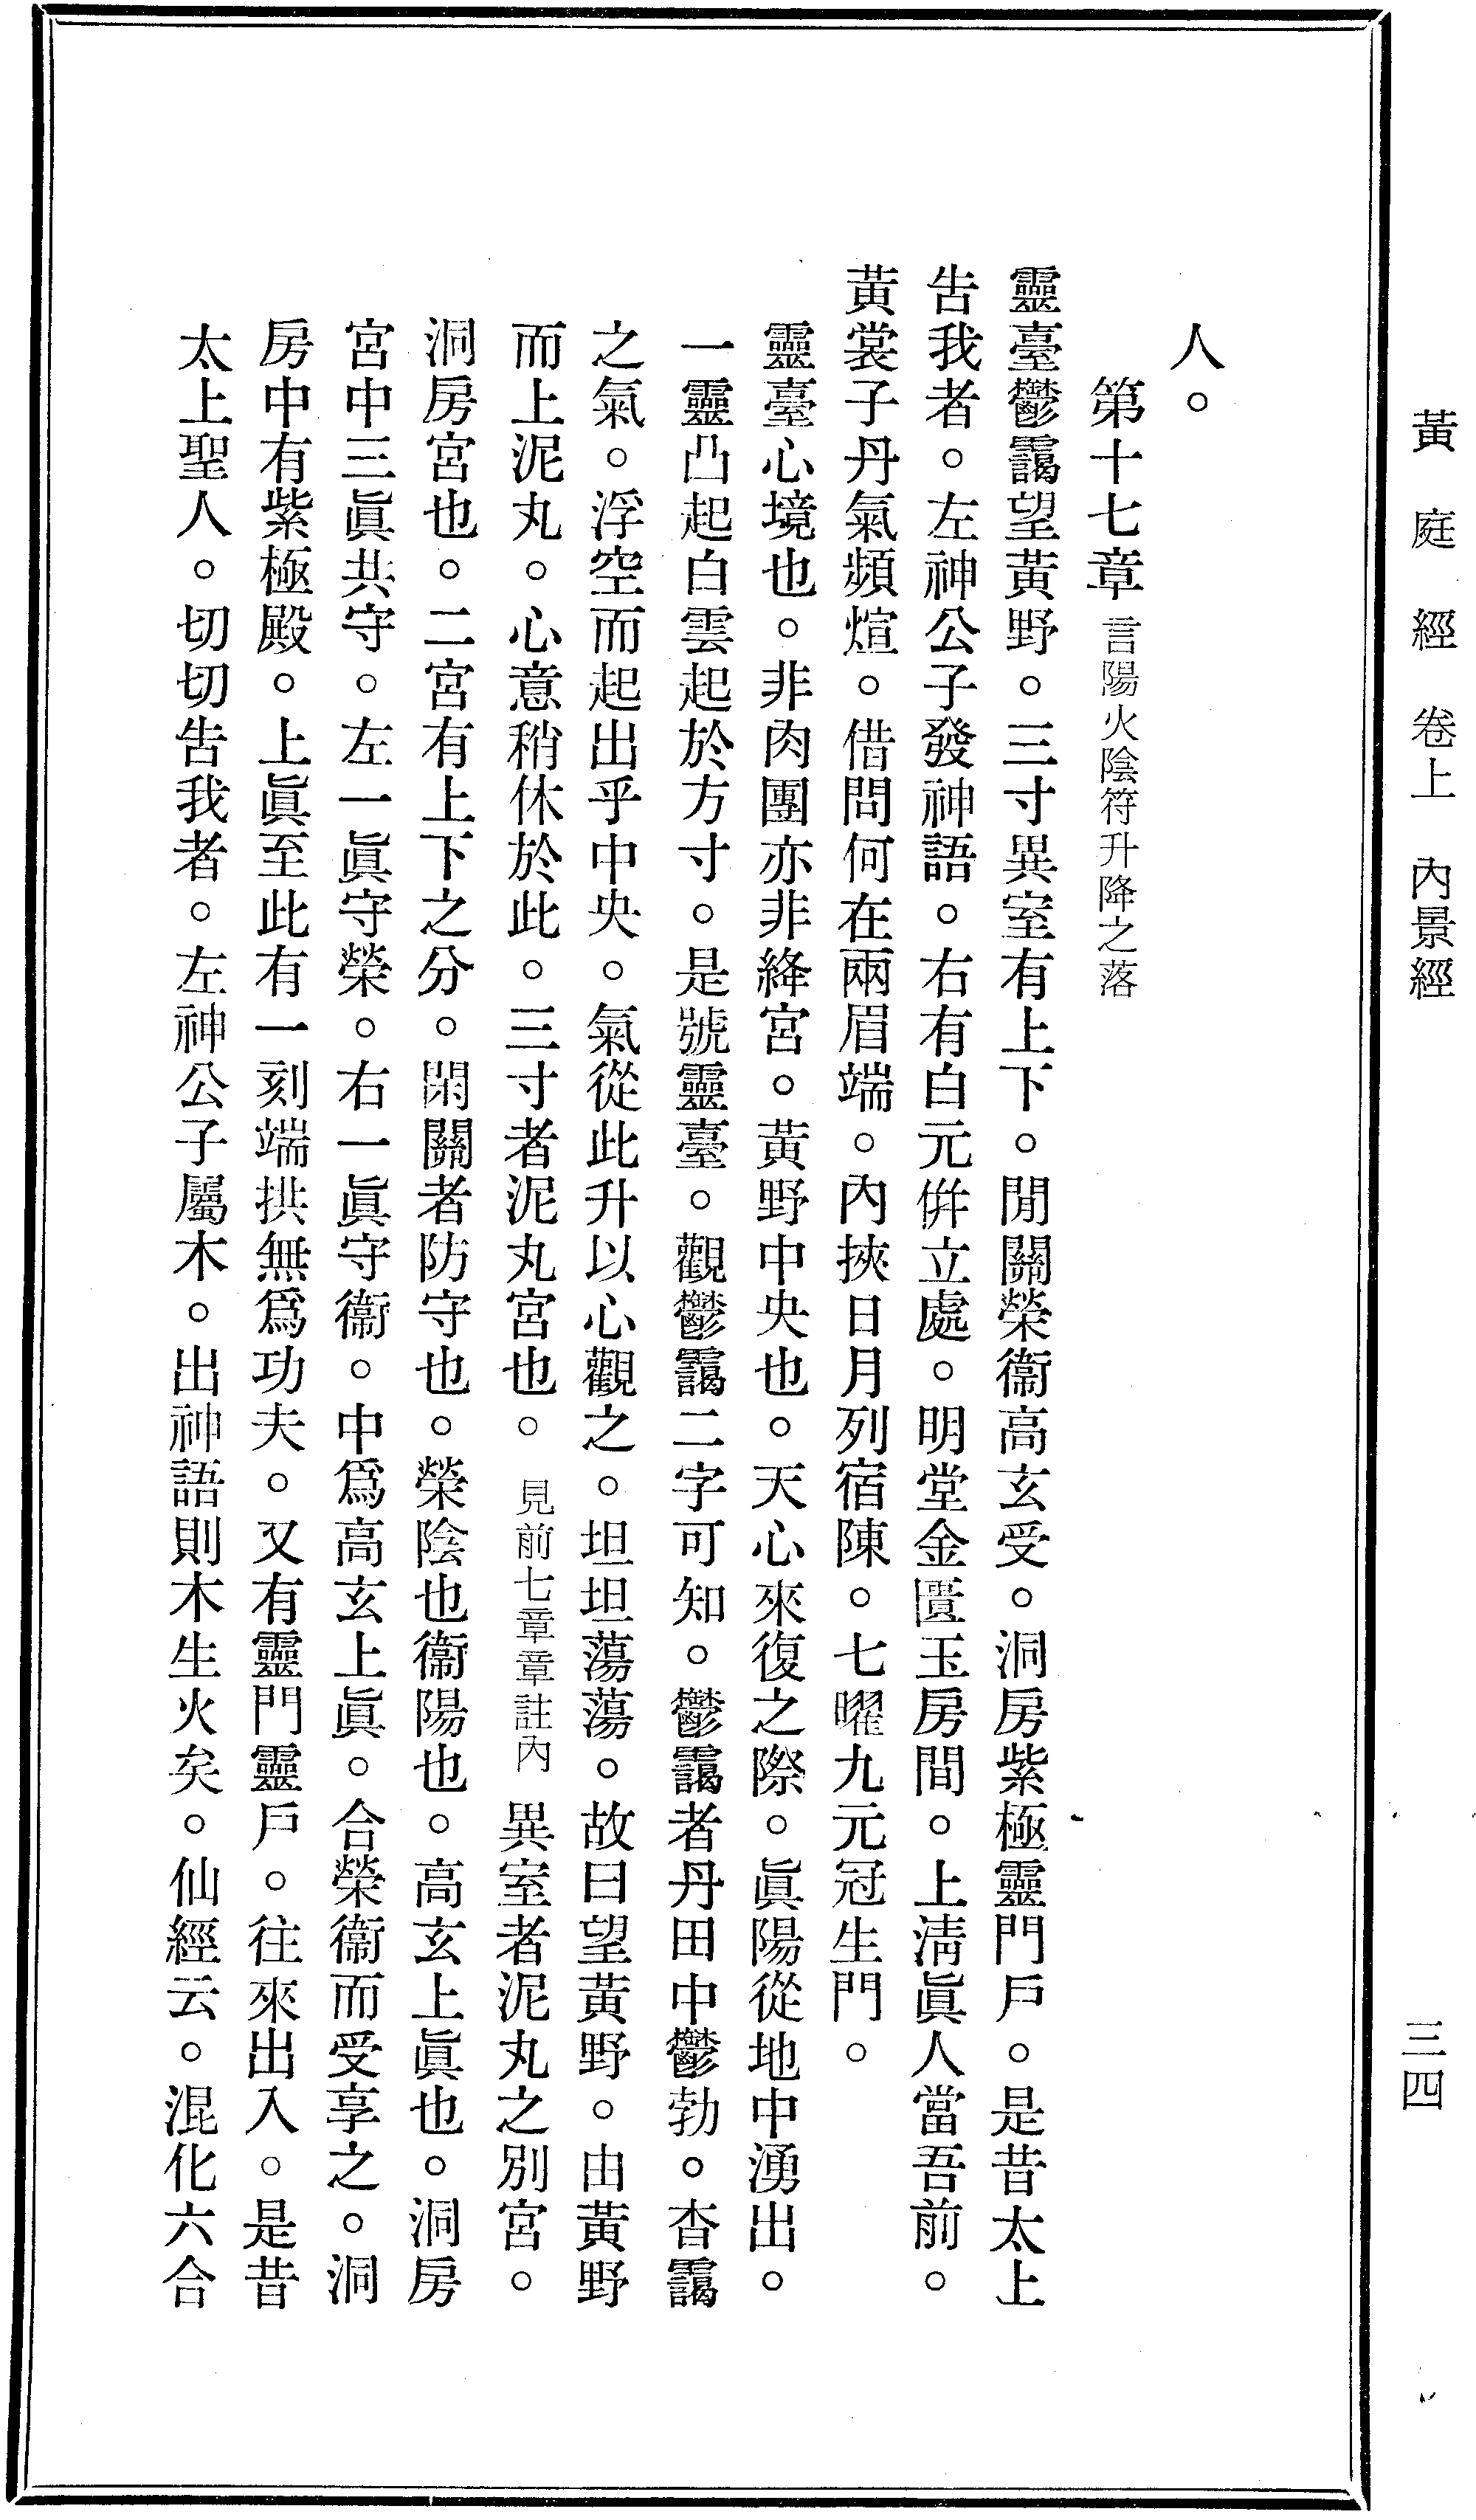 黃庭經 卷上 內景經 三四
人。
第十七章 言陽火陰符升降之落
靈臺鬱靄望黃野。三寸異室有上下。閒關榮衞高玄受。洞房紫極靈門戶。是昔太上
告我者。左神公子發神語。右有白元倂立處。明堂金匱玉房間。上淸眞人當吾前。
黃裳子丹氣頻煊。借問何在兩眉端。內挾日月列宿陳。七曜九元冠生門。
靈臺心境也。非肉團亦非絳宮。黃野中央也。天心來復之際。眞陽從地中湧出。
一靈凸起白雲起於方寸。是號靈臺。觀鬱靄二字可知。鬱靄者丹田中鬱勃。杳靄
之氣。浮空而起出乎中央。氣從此升以心觀之。坦坦蕩蕩。故曰望黃野。由黃野
而上泥丸。心意稍休於此。三寸者泥丸宮也。見前七章章註內 異室者泥丸之別宮。
洞房宮也。二宮有上下之分。閑關者防守也。榮陰也衞陽也。高玄上眞也。洞房
宮中三眞共守。左一眞守榮。右一眞守衞。中爲高玄上眞。合榮衞而受享之。洞
房中有紫極殿。上眞至此有一刻端拱無爲功夫。又有靈門靈戶。往來出入。是昔
太上聖人。切切告我者。左神公子屬木。出神語則木生火矣。仙經云。混化六合